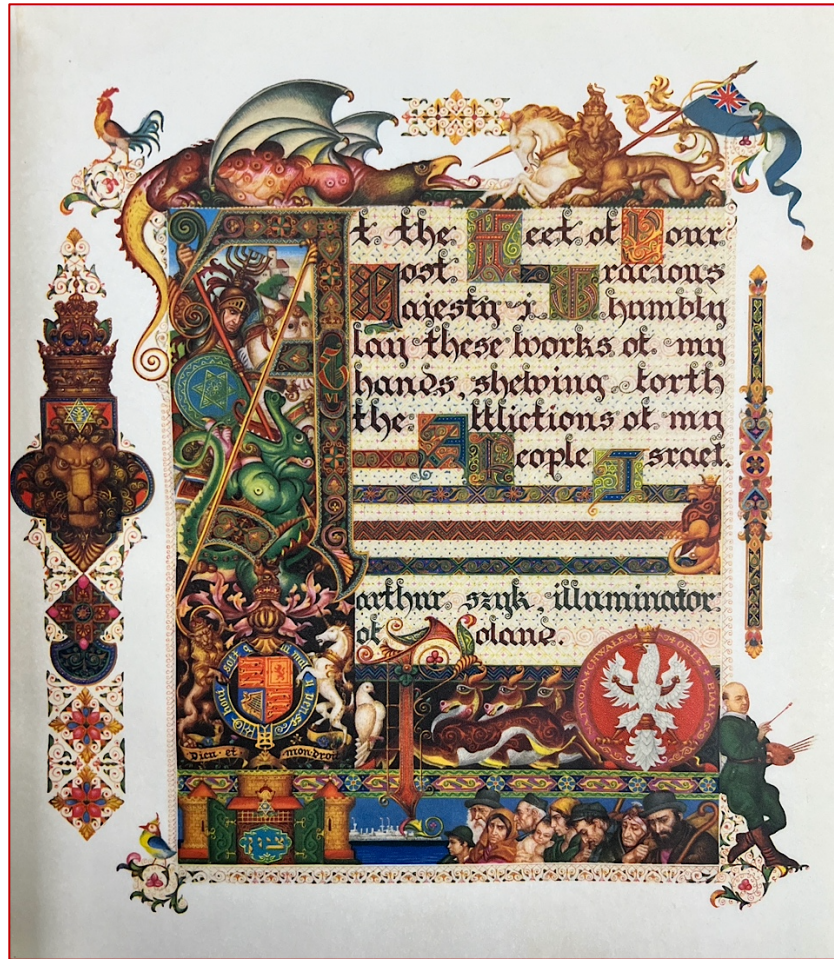 At the Feet of Your
Most Gracious
Majesty i humbly
lay these works of my
hands, shewing forth
the Afflictions of my
People Israel.
G
VI
arthur szyk, illuminator
of Poland.
honi soit q ui mal y pense
Dieu et mon droit
CHWALE ORLE
ציון